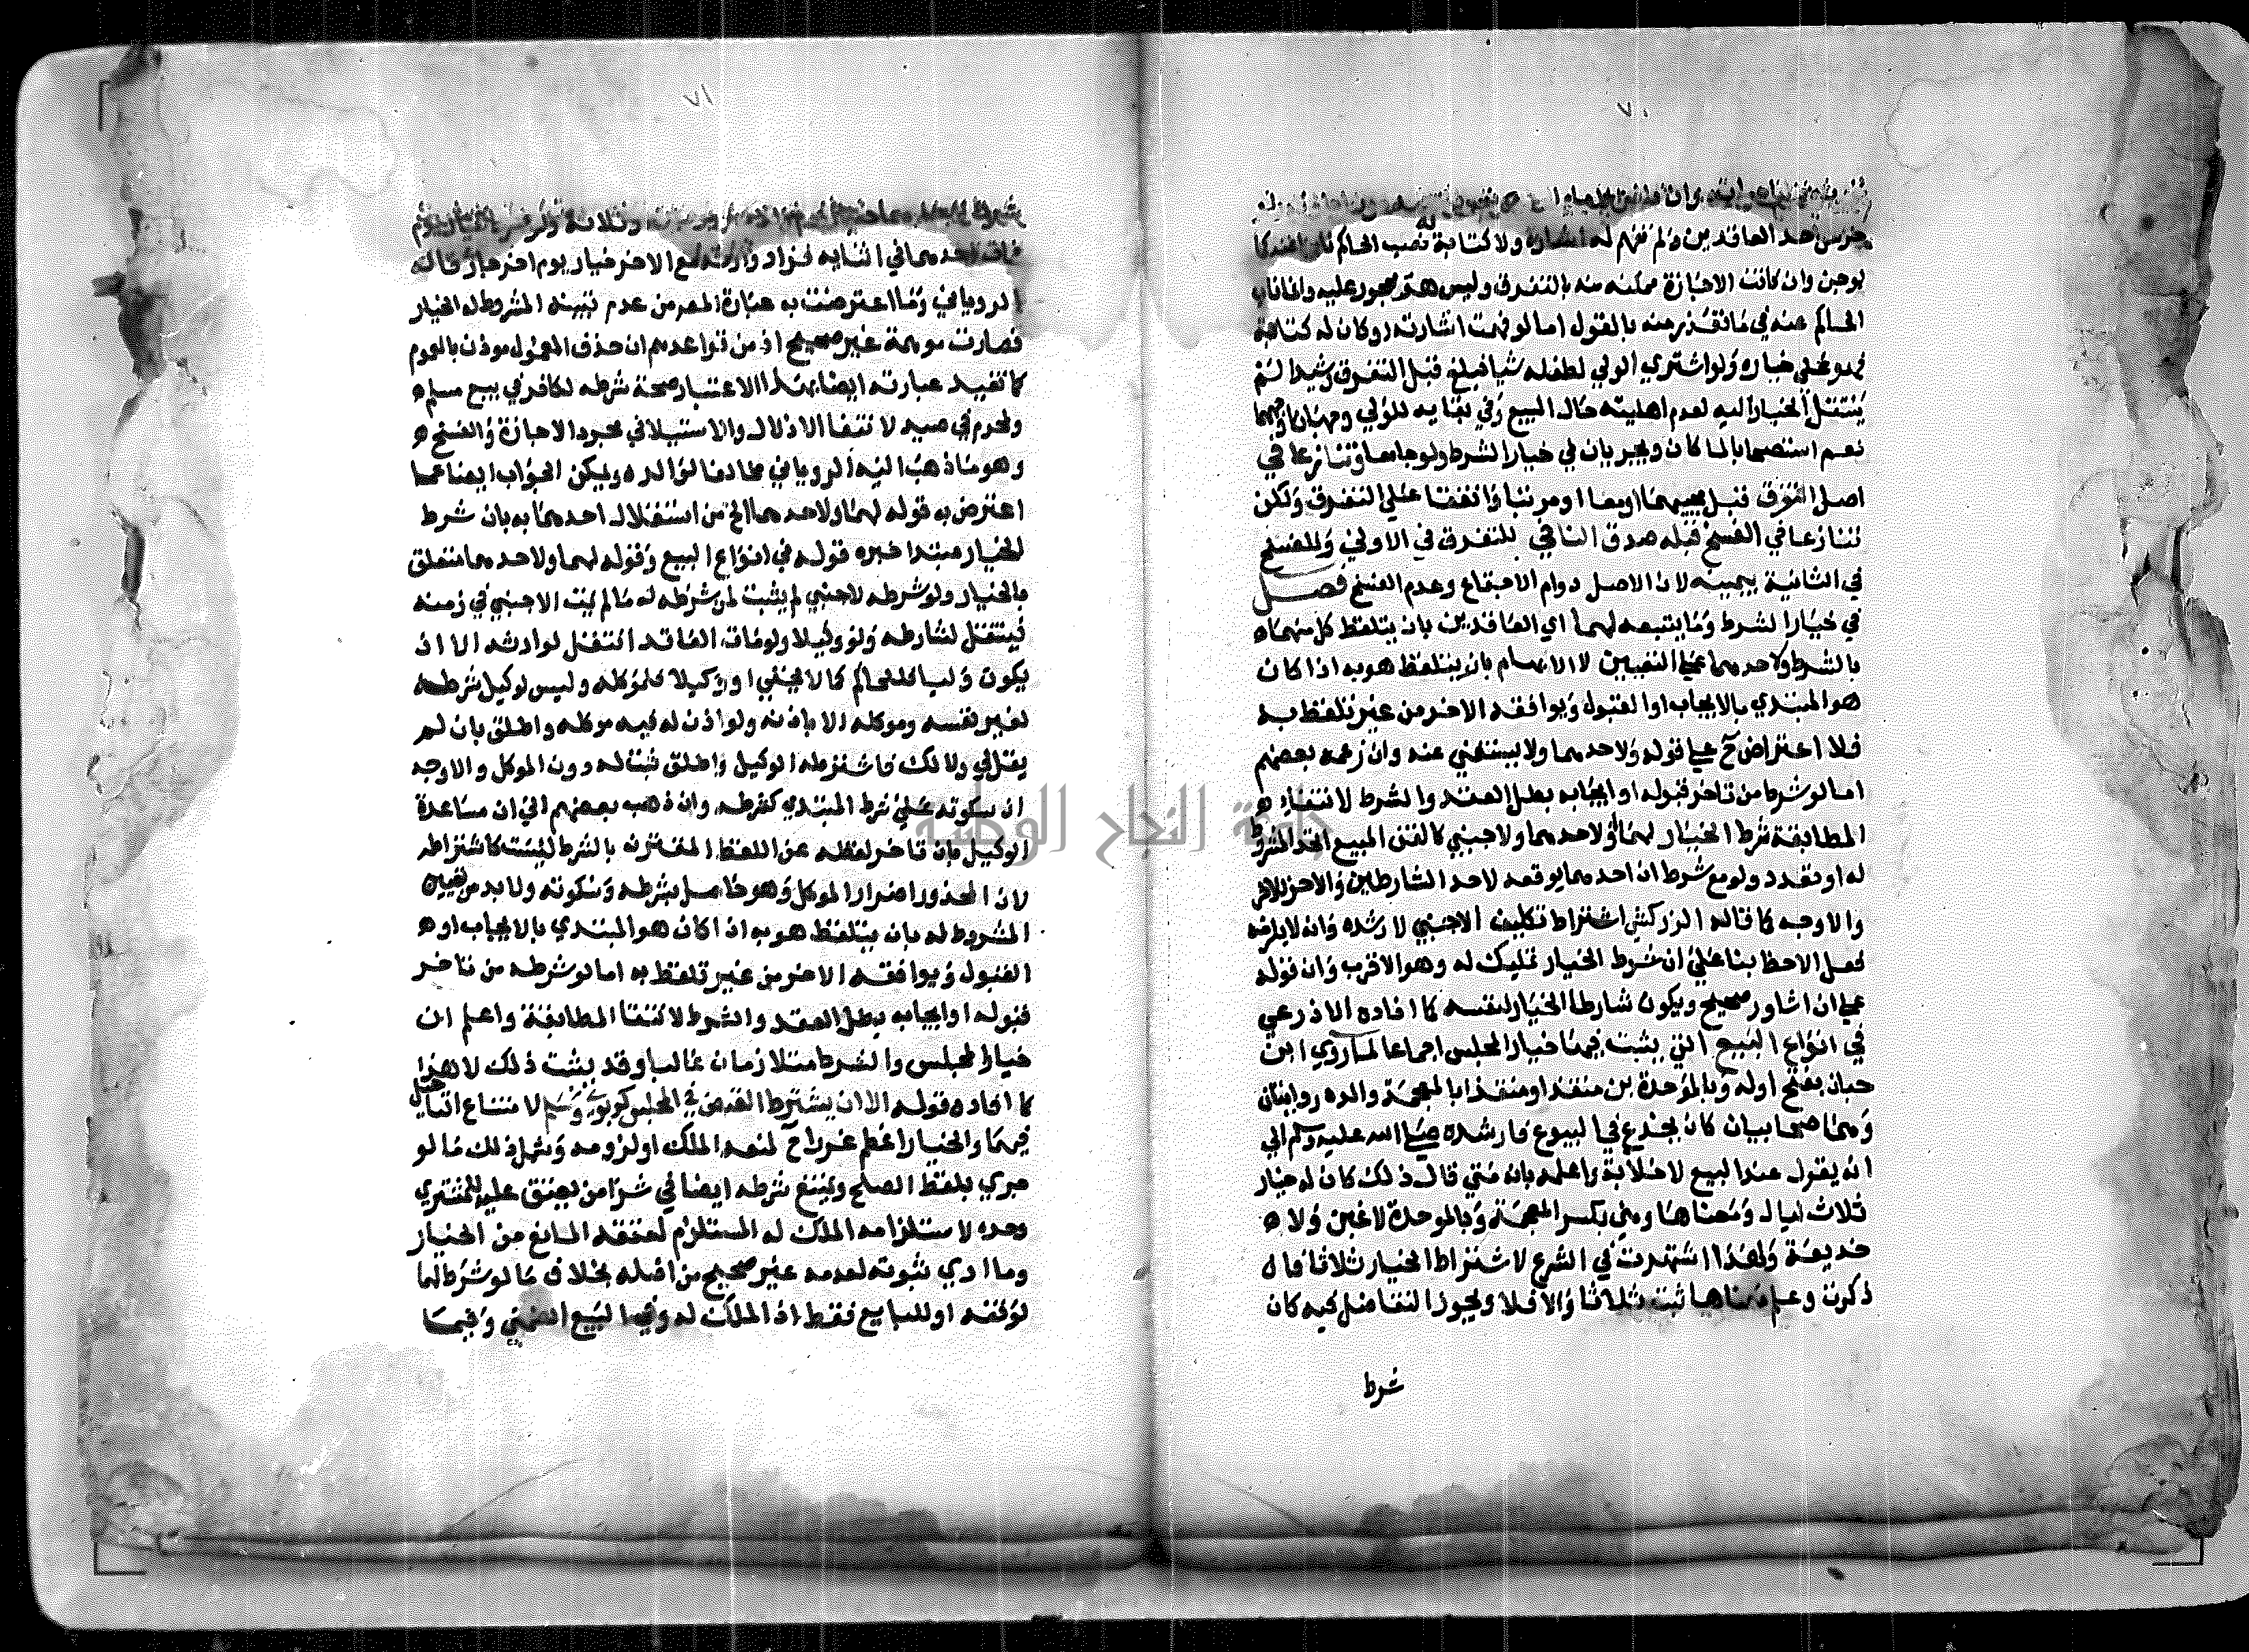 ٧٠
خرس احد العاقدين ولم تفهم له اشارة ولا كتابة له نصب الحاكم نايبا عنه كما
لو جن وان كانت الاجازة ممكنة منه بالتفرق وليس هو محجور عليه وانما ناب
الحاكم عنه في ما تعذر منه بالقول اما لو فهمت اشارته او كان له كتابة
فهو على خياره ولو اشترى الولي لطفله شيا فبلغ قبل التفرق رشيدا لم
ينتقل الخيار اليه لعدم اهليته حال البيع وفي بقايه للولي وجهان اوجههما
نعم استصحابا لما كان ويجريان في خيار الشرط ولو جا معا وتنازعا في
اصل التفرق قبل مجيهما او معا او مرتبا واتفقا على التفرق ولكن
تنازعا في الفسخ قبله صدق النافي للتفرق في الاولى وللفسخ
في الثانية بيمينه لان الاصل دوام الاجتماع وعدم الفسخ فصل
في خيار الشرط وما يتبعه لهما اي العاقدين بان يتلفظ كل منهما ه
بالشرط ولاحدهما على التعيين لا الابهام بان يتلفظ هو به اذا كان
هو المبتدي بالايجاب او القبول ويوافقه الاخر من غير تلفظ به
فلا اعتراض ح على قوله ولاحدهما ولا يستغني عنه وان زعمه بعضهم
اما لو شرط من تاخر قبوله او ايجابه بطل العقد والشرط لانتفاء ه
المطابقة شرط الخيار لهما ولاحدهما ولاجنبي كالقن المبيع اتحد المشروط
له او تعدد ولو مع شرط ان احدهما يوقعه لاحد الشارطين والاخر للاخر
والاوجه كما قاله الزركشي اشتراط تكليف الاجنبي لا رشده وانه لا يلزمه
فعل الاحظ بنا على ان شرط الخيار تمليك له وهو الاقرب وان قوله
على ان اشاور صحيح ويكون شارطا الخيار لنفسه كما افاده الاذرعي
في انواع البيع التي يثبت فيها خيار المجلس اجماعا لما روي ابن
حبان بفتح اوله وبالموحدة بن منقذ او منقذ ابا لمعجمة والده روايتان
وهما صحابيان كان يخدع في البيوع فارشده صلى الله عليه وسلم الى
انه يقول عند البيع لا خلابة واعلمه بانه متى قال ذلك كان له خيار
ثلاث ليال ومعناها وهي بكسر المعجمة وبالموحدة لا غبن ولا ه
خديعة ولهذا اشتهرت في الشرع لاشتراط الخيار ثلاثا فان
ذكرت وعلم معناها ثبت ثلاثا والا فلا ويجوز التفاضل فيه كان
شرط
٧١
فات احدهما في اثنايه لزاد وارثه مع الاخر خيار يوم اخر جاز قاله
الروياني وما اعترضت به عبارة المص من عدم تبيينه المشروط له الخيار
فصارت موهمة غير صحيح اذ من قواعدهم ان حذف المعمول موذن بالعموم
كما تفيد عبارته ايضا بهذا الاعتبار صحة شرطه لكافر في بيع مسلم ه
ومحرم في صيد لانتفا الاذلال والاستيلا في مجرد الاجازة والفسخ ه
وهو ما ذهب اليه الروياني مخالفا لوالده ويمكن الجواب ايضا عما
اعترض به قوله لهما ولاحدهما الخ من استقلال احدهما به بان شرط
الخيار مبتدا خبره قوله في انواع البيع وقوله لهما ولاحدهما متعلق
بالخيار ولو شرطه لاجنبي لم يثبت لمن شرطه له ما لم يمت الاجنبي في زمنه
فينتقل لشارطه ولو وكيلا ولو مات العاقد انتقل لوارثه الا ان
يكون وليا فللحاكم كما لا يخفى او وكيلا فلموكله وليس لوكيل شرطه
لغير نفسه وموكله الا باذنه ولو اذن له فيه موكله واطلق بان لم
يقل لي ولا لك فاشترطه الوكيل واطلق ثبت له دون الموكل والاوجه
ان سكوته على شرط المبتدي كشرطه وان ذهب بعضهم الى ان مساعدة
الوكيل بان تاخر لفظه عن اللفظ المقترن بالشرط ليست كاشتراطه
لان المحذور اضرار الموكل وهو حاصل بشرطه وسكوته ولا بد من تعيين
المشروط له بان يتلفظ هو به اذا كان هو المبتدي بالايجاب او ه
القبول ويوافقه الاخر من غير تلفظ به اما لو شرطه من تاخر
قبوله او ايجابه بطل العقد والشرط لانتفا المطابقة واعلم ان
خيار المجلس والشرط متلازمان غالبا وقد يثبت ذلك لا هذا
كما افاده قوله الا ان يشترط القبض في المجلس كربوي وسلم لامتناع التاجيل
فيهما والخيار اعظم غررا ح لمنعه الملك او لزومه وشمل ذلك ما لو
جرى بلفظ الصلح ويمتنع شرطه ايضا في شرا من يعتق عليه للمشتري
وحده لاستلزامه الملك له المستلزم لعتقه المانع من الخيار
وما ادى ثبوته لعدمه غير صحيح من اصله بخلاف ما لو شرط لهما
لوقفه او للبايع فقط اذ الملك له وفي البيع الضمني وفيما
جامعة النجاح الوطنية